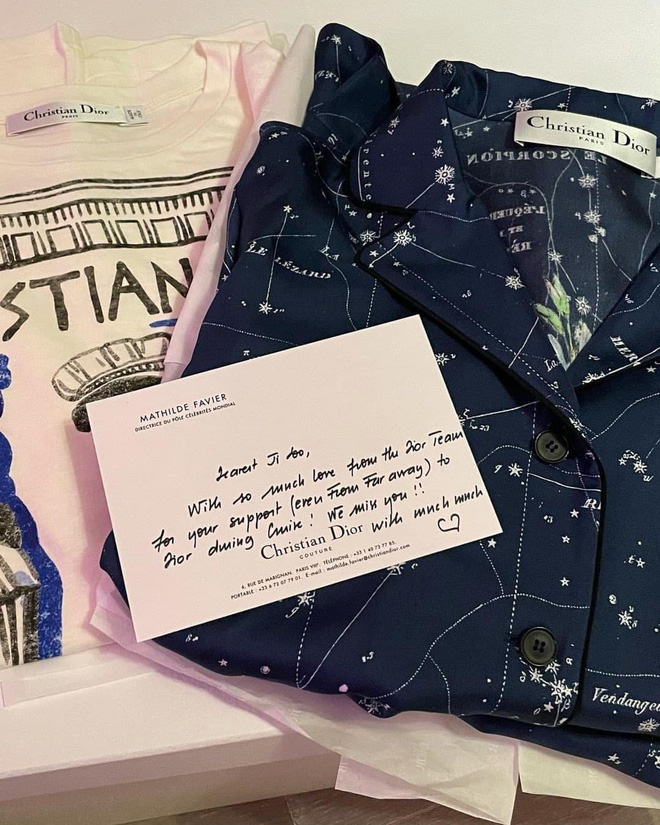 Christian Dior
PARIS
STIAN
Christian Dior
PARIS
LE SCORPION
MATHILDE FAVIER
DIRECTRICE DU PÔLE CÉLÉBRITÉS MONDIAL
Dearest Ji Soo,
With so much love from the Dior Team
for your support (even From Far away) to
Dior during Cruise! We miss you!!
with much much
Christian Dior
COUTURE
6, RUE DE MARIGNAN. PARIS VIIIᵉ. TÉLÉPHONE : +33 1 40 73 77 85.
PORTABLE : +33 6 73 07 79 01. E-mail : mathilde.favier@christiandior.com
Vendange